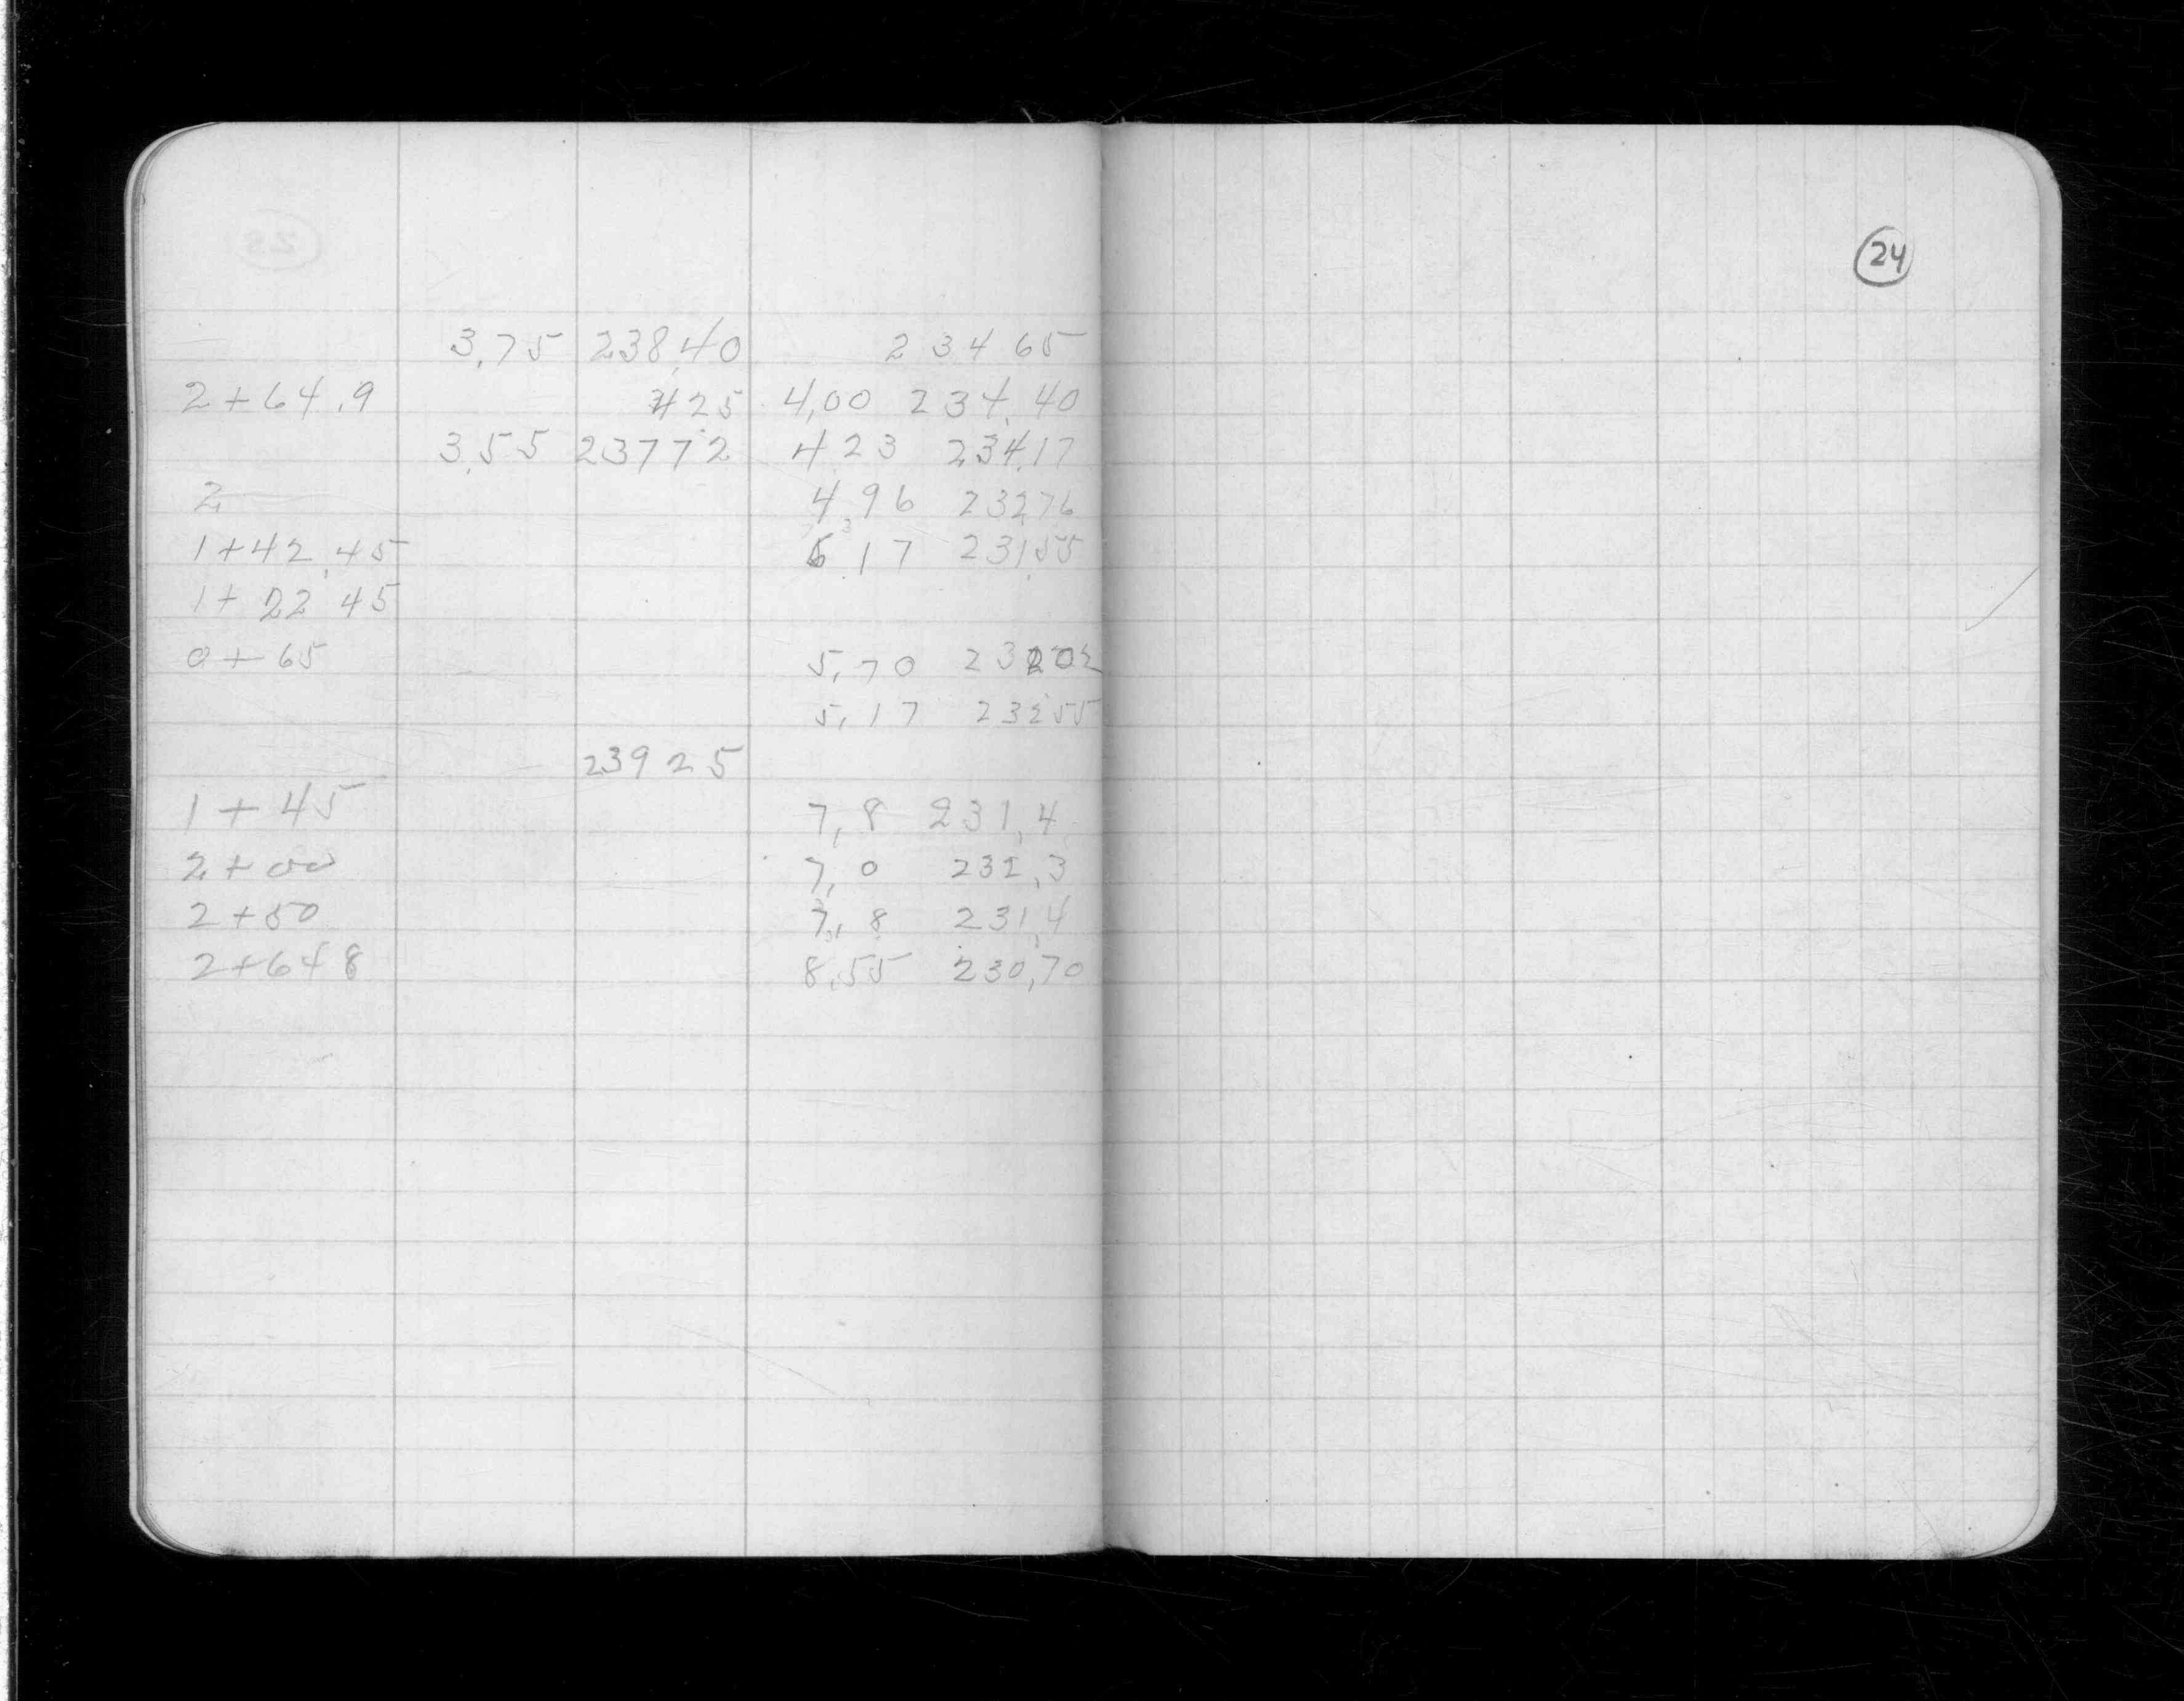 24
3.75 238.40 234 65
2+64.9 425 4.00 234.40
3.55 237 72 4 23 234.17
2
4.96 232.76
1+42.45 6.17 231.55
1+22 45
0+65 5.70 232 02
5.17 232 55
239 25
1+45 7.8 231.4
2+00 7.0 232.3
2+50 7.8 231.4
2+64 8 8.55 230.70